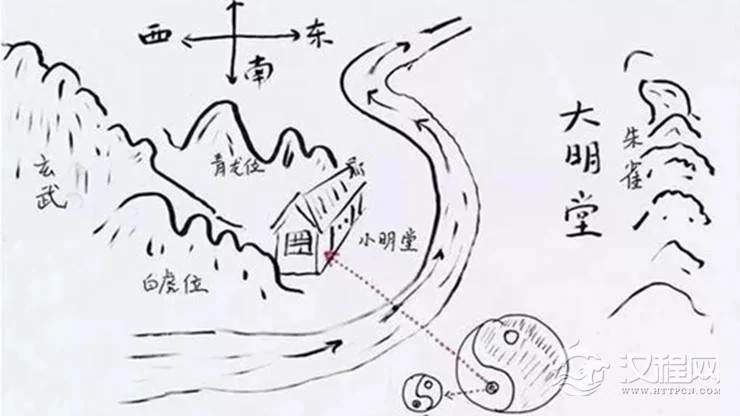 西 东
南
大明堂
朱雀
玄武
青龙位
小明堂
白虎位
汉程网
WWW.HTTPCN.COM